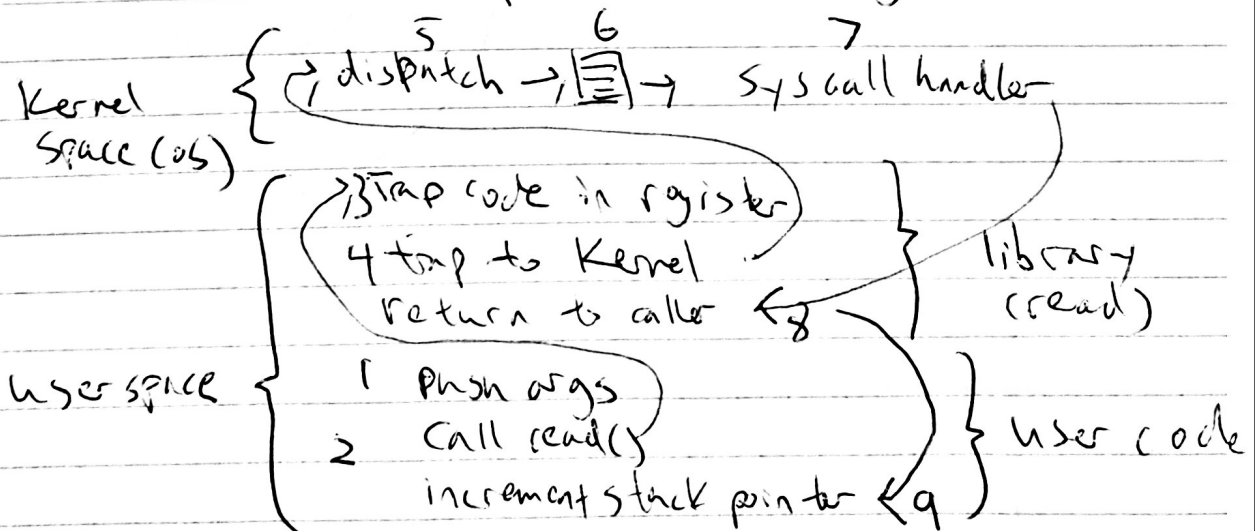 5 6 7
Kernel space (os)
dispatch → → syscall handler
3 Trap code in register
4 trap to Kernel
return to caller 8
library (read)
user space
1 push args
2 Call read()
increment stack pointer 9
user code